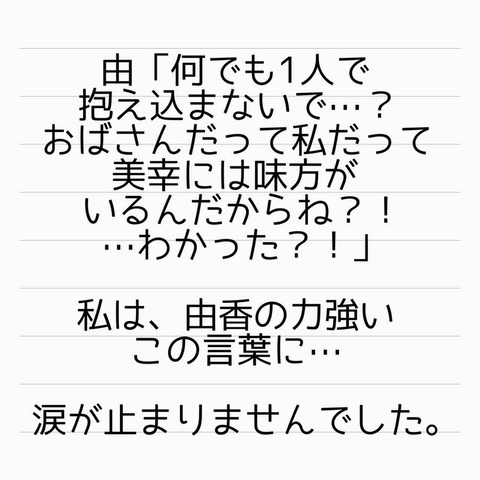 由「何でも1人で
抱え込まないで…？
おばさんだって私だって
美幸には味方が
いるんだからね？！
…わかった？！」
私は、由香の力強い
この言葉に…
涙が止まりませんでした。